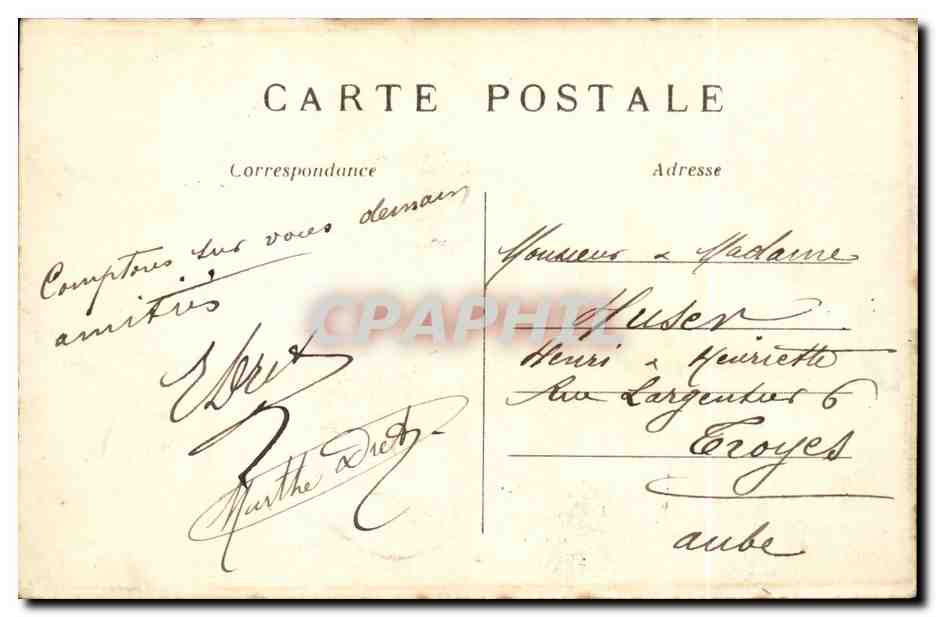 CARTE POSTALE
Correspondance
Comptons sur vous demain
amitiés
E Dret
Marthe Dret
Adresse
Monsieur & Madame
Huser
Henri & Henriette
Rue Largentier 6
Troyes
aube
CPAPHIL